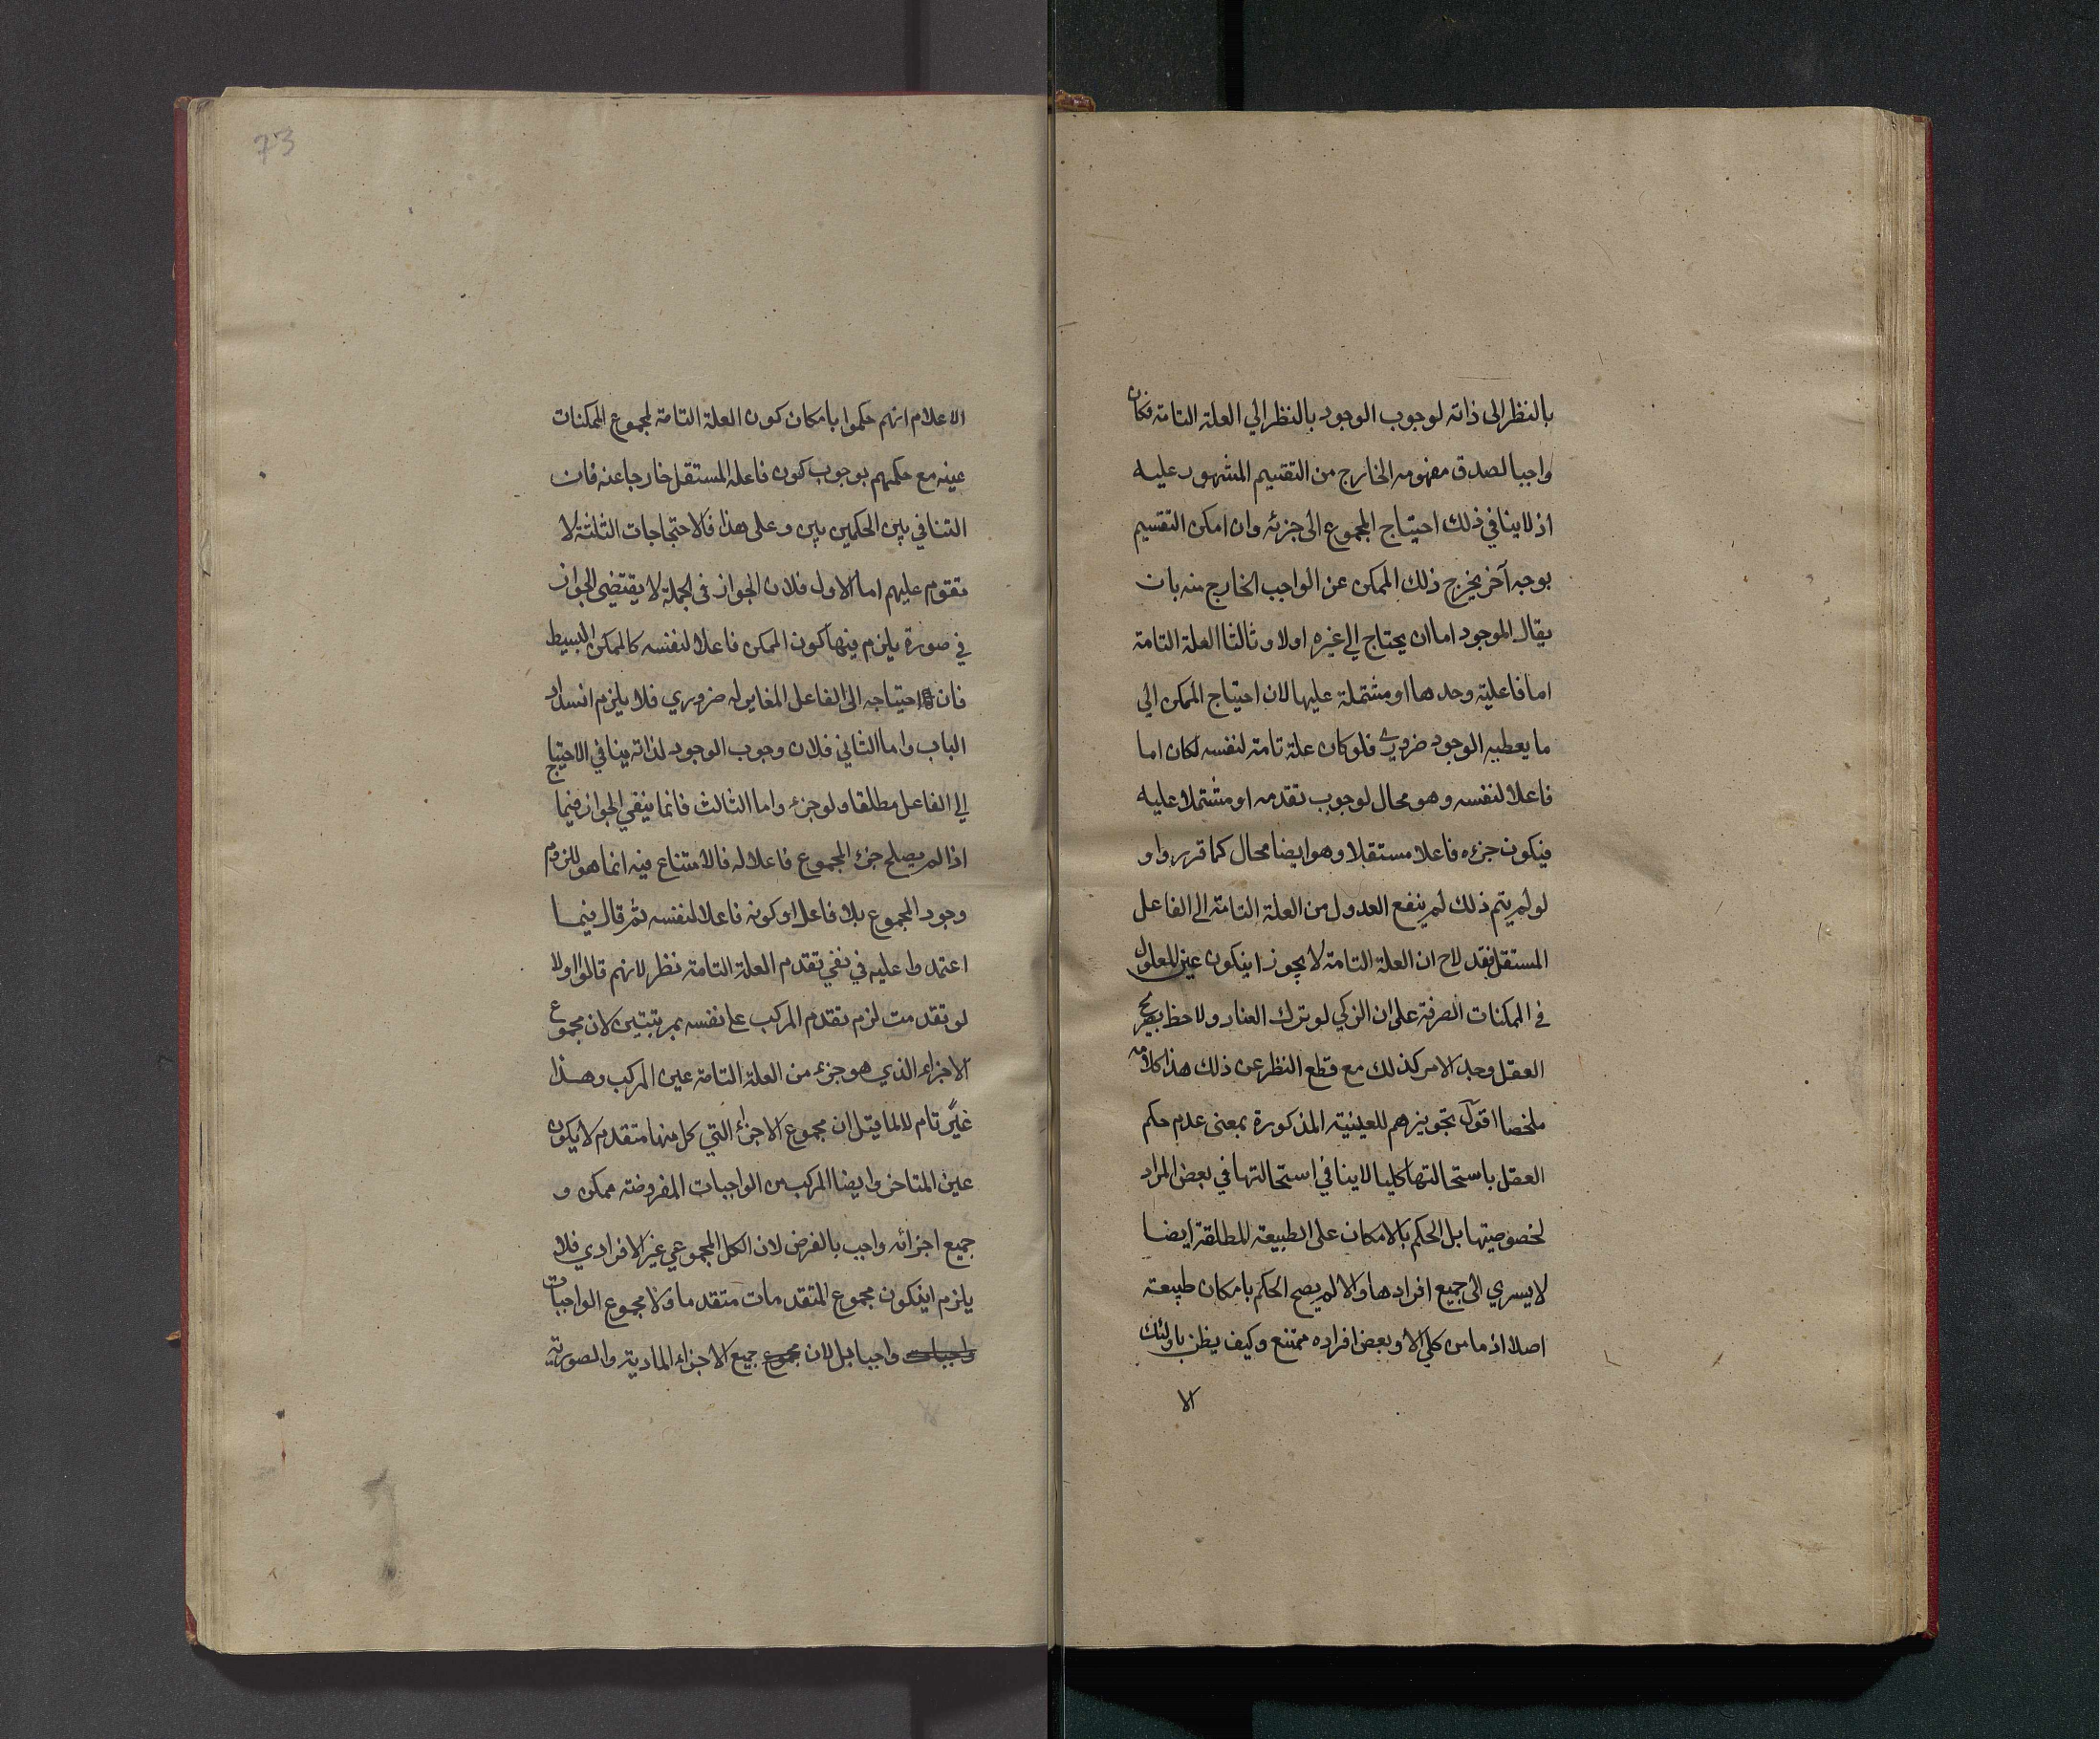 بالنظر الى ذاته لوجوب الوجود بالنظر الي العلة التامة فكان
واجبا لصدق مفهومه الخارج من التقسيم المشهور عليه
اذ لا ينافي ذلك احتياج المجموع الى جزئه وان امكن التقسيم
بوجه آخر يخرج ذلك الممكن عن الواجب الخارج منه بان
يقال الموجود اما ان يحتاج الي غيره اولا وثالثا العلة التامة
اما فاعلية وحدها او مشتملة عليها لان احتياج الممكن الي
ما يعطيه الوجود ضروري فلو كان علة تامة لنفسه لكان اما
فاعلا لنفسه وهو محال لوجوب تقدمه او مشتملا عليه
فيكون جزءه فاعلا مستقلا وهو ايضا محال كما قرروا و
لو لم يتم ذلك لم ينفع العدول من العلة التامة الى الفاعل
المستقل فقد لاح ان العلة التامة لا يجوز ايكون عين المعلول
في الممكنات الصرفة على ان الزكي لو ترك العناد ولاحظ بصريح
العقل وجد الامر كذلك مع قطع النظر عن ذلك هذا كلامه
ملخصا اقول تجويزهم للعينية المذكورة بمعنى عدم حكم
العقل باستحالتها كليا لا ينافي استحالتها في بعض المراد
لخصوصيتها بل الحكم بالامكان على الطبيعة المطلقة ايضا
لا يسري الى جميع افرادها والا لم يصح الحكم بامكان طبيعة
اصلا اذ ما من كلي الا وبعض افراده ممتنع وكيف يظن باولئك
الا
73
الاعلام انهم حكموا بامكان كون العلة التامة لمجموع الممكنات
عينه مع حكمهم بوجوب كون فاعله المستقل خارجا عنه فان
التنافي بين الحكمين بين وعلى هذا فالاحتجاجات الثلثة لا
تقوم عليهم اما الاول فلان الجواز في الجملة لا يقتضى الجواز
في صورة يلزم فيها كون الممكن فاعلا لنفسه كالممكن البسيط
فان احتياجه الى الفاعل المغاير له ضروري فلا يلزم انسداد
الباب واما الثاني فلان وجوب الوجود لذاته ينافي الاحتياج
الي الفاعل مطلقا ولو جزء واما الثالث فانما ينفي الجواز فيما
اذا لم يصلح جزء المجموع فاعلا له فالامتناع فيه انما هو للزوم
وجود المجموع بلا فاعل او كونه فاعلا لنفسه ثم قال فيما
اعتمدوا عليه في نفي تقدم العلة التامة نظر لانهم قالوا اولا
لو تقدمت لزم تقدم المركب على نفسه بمرتبتين لان مجموع
الاجزاء الذي هو جزء من العلة التامة عين المركب وهذا
غير تام لا لما قيل ان مجموع الاجزاء التي كل منها متقدم لا يكون
عين المتاخر وايضا المركب من الواجبات المفروضة ممكن و
جميع اجزائه واجب بالفرض لان الكل المجموعي غير الافرادي فلا
يلزم ايكون مجموع المتقدمات متقدما ولا مجموع الواجبات
واجبات واجبا بل لان مجموع جميع الاجزاء المادية والصورية